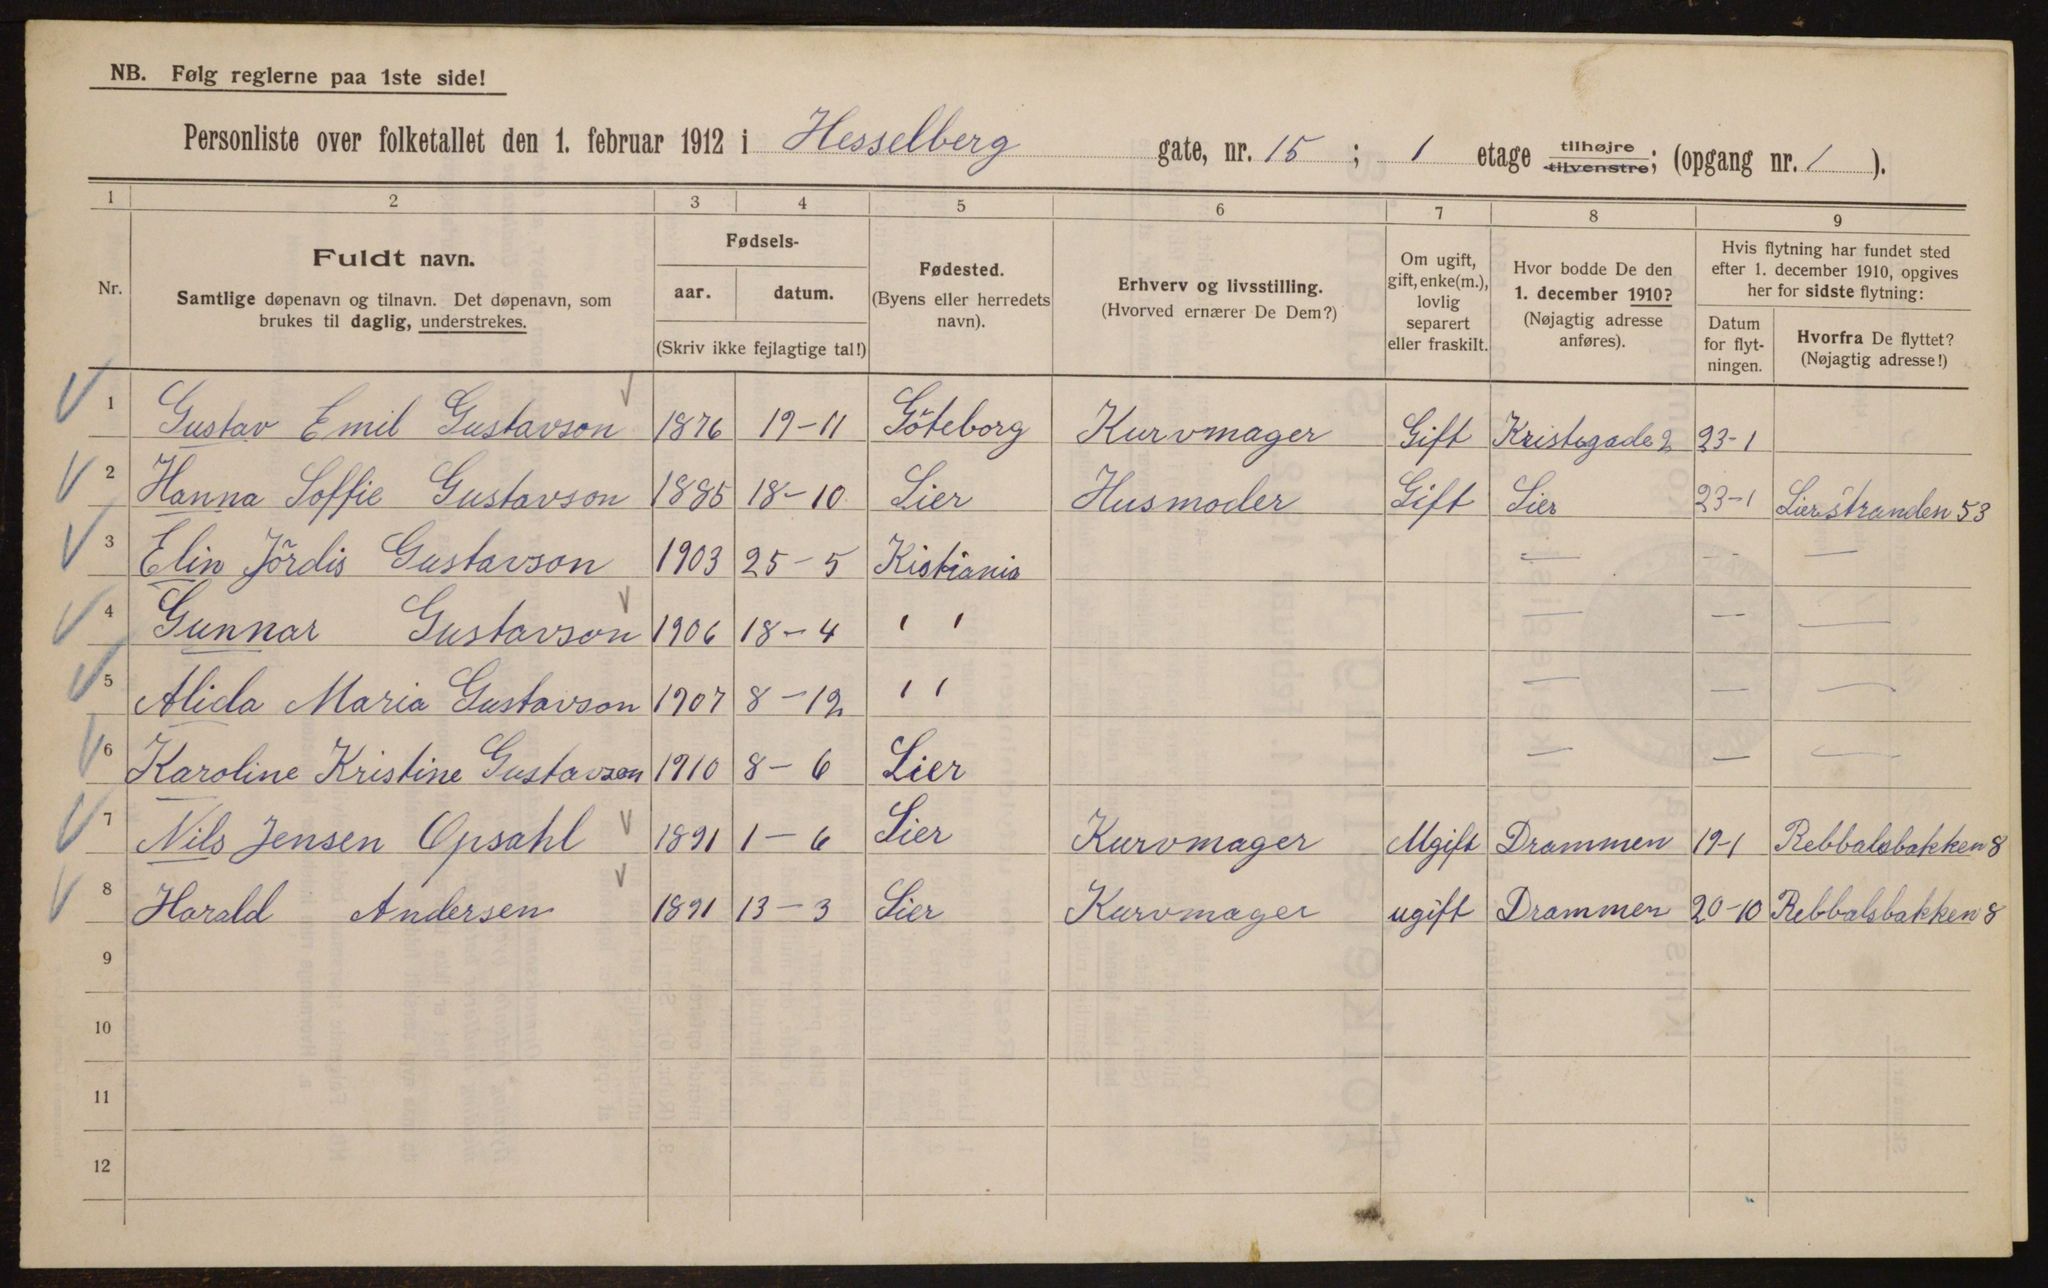 NB. Følg reglerne paa 1ste side!
Personliste over folketallet den 1. februar 1912 i Hesselberg gate, nr. 15; 1 etage tilhøjre tilvenstre; (opgang nr. 1).
1 2 3 4 5 6 7 8 9
Nr.
Fuldt navn.
Samtlige døpenavn og tilnavn. Det døpenavn, som
brukes til daglig, understrekes.
Fødsels-
aar. datum.
(Skriv ikke fejlagtige tal!)
Fødested.
(Byens eller herredets
navn).
Erhverv og livsstilling.
(Hvorved ernærer De Dem?)
Om ugift,
gift, enke(m.),
lovlig
separert
eller fraskilt.
Hvor bodde De den
1. december 1910?
(Nøjagtig adresse
anføres).
Hvis flytning har fundet sted
efter 1. december 1910, opgives
her for sidste flytning:
Datum
for flyt-
ningen.
Hvorfra De flyttet?
(Nøjagtig adresse!)
1 Gustav Emil Gustavson 1876 19-11 Göteborg Kurvmager Gift Kristsgade 2 23-1
2 Hanna Soffie Gustavson 1885 18-10 Lier Husmoder Gift Lier 23-1 Lierstranden 53
3 Elin Jördis Gustavson 1903 25-5 Kistiania — - - —
4 Gunnar Gustavson 1906 18-4 " — — —
5 Alida Maria Gustavson 1907 8-12 " — — —
6 Karoline Kristine Gustavson 1910 8-6 Lier — — —
7 Nils Jensen Opsahl 1891 1-6 Lier Kurvmager Ugift Drammen 19-1 Rebbalsbakken 8
8 Harald Andersen 1891 13-3 Lier Kurvmager ugift Drammen 20-10 Rebbalsbakken 8
9
10
11
12